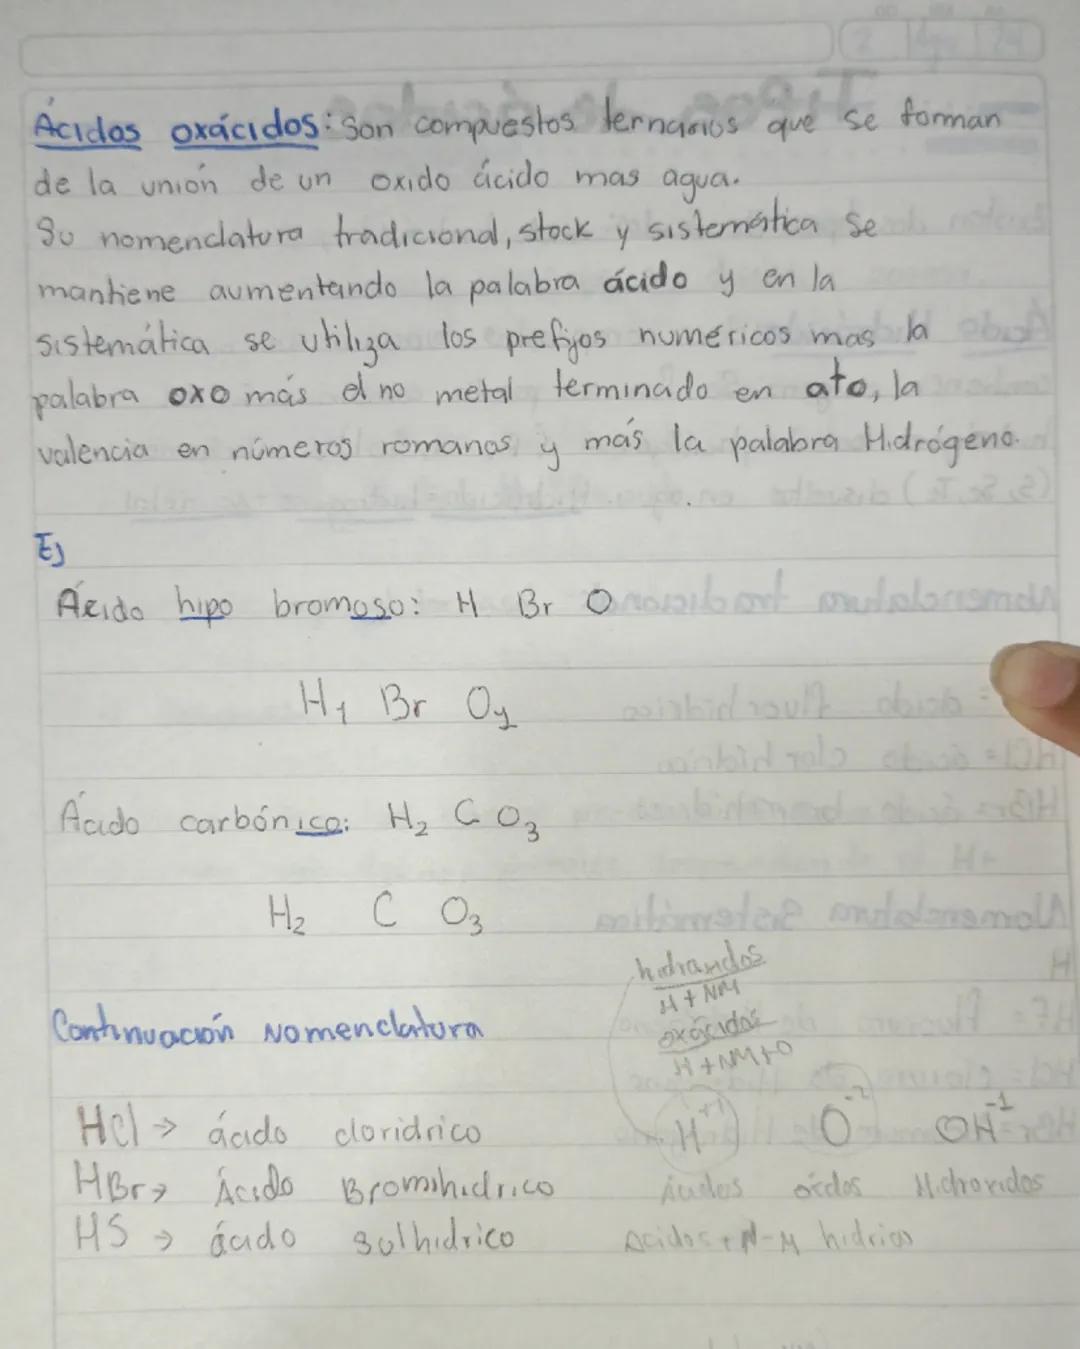 Ácidos oxácidos: Son compuestos ternarios que se forman
de la unión de un oxido ácido mas agua.
Su nomenclatura tradicional, stock y sistemática se
mantiene aumentando la palabra ácido y en la
sistemática se utiliza los prefijos numéricos mas la
palabra oxo más el no metal terminado en ato, la
valencia en números romanos y más la palabra Hidrógeno.
Ej
Ácido hipo bromoso: H Br O
H1 Br Oy
Ácido carbónico: H2 C O3
H2 C O3
hidrácidos
H + NM
Continuación Nomenclatura
oxácidos
H + NM + O
HCl → ácido cloridrico
H+1 O-2 OH-1
HBr → Ácido Bromihidrico
Ácidos óxidos Hidroxidos
HS → ácido sulhidrico
Acidos + N-M hidrico